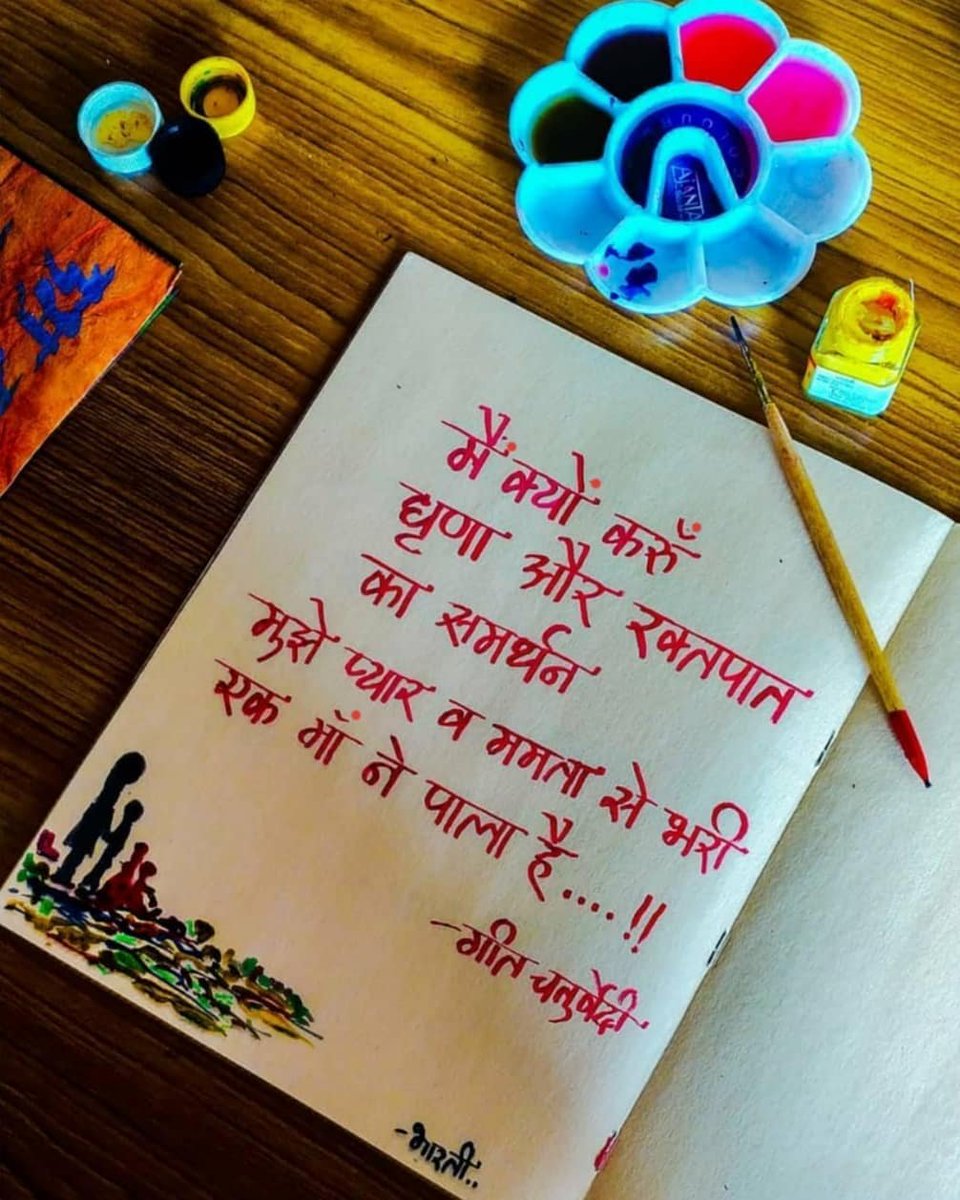 AJANTA
मैं क्यों करुँ
घृणा और रक्तपात
का समर्थन
मुझे प्यार व ममता से भरी
एक माँ ने पाला है....!!
-गीत चतुर्वेदी
-भारती..